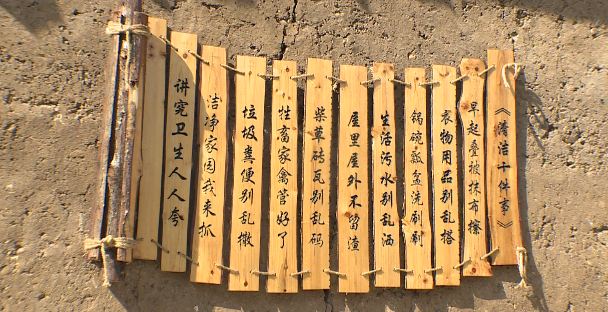 《清洁十件事》
早起叠被抹布擦
衣物用品别乱搭
锅碗瓢盆洗刷刷
生活污水别乱洒
屋里屋外不留渣
柴草砖瓦别乱码
牲畜家禽管好了
垃圾粪便别乱撒
洁净家园我来抓
讲究卫生人人夸